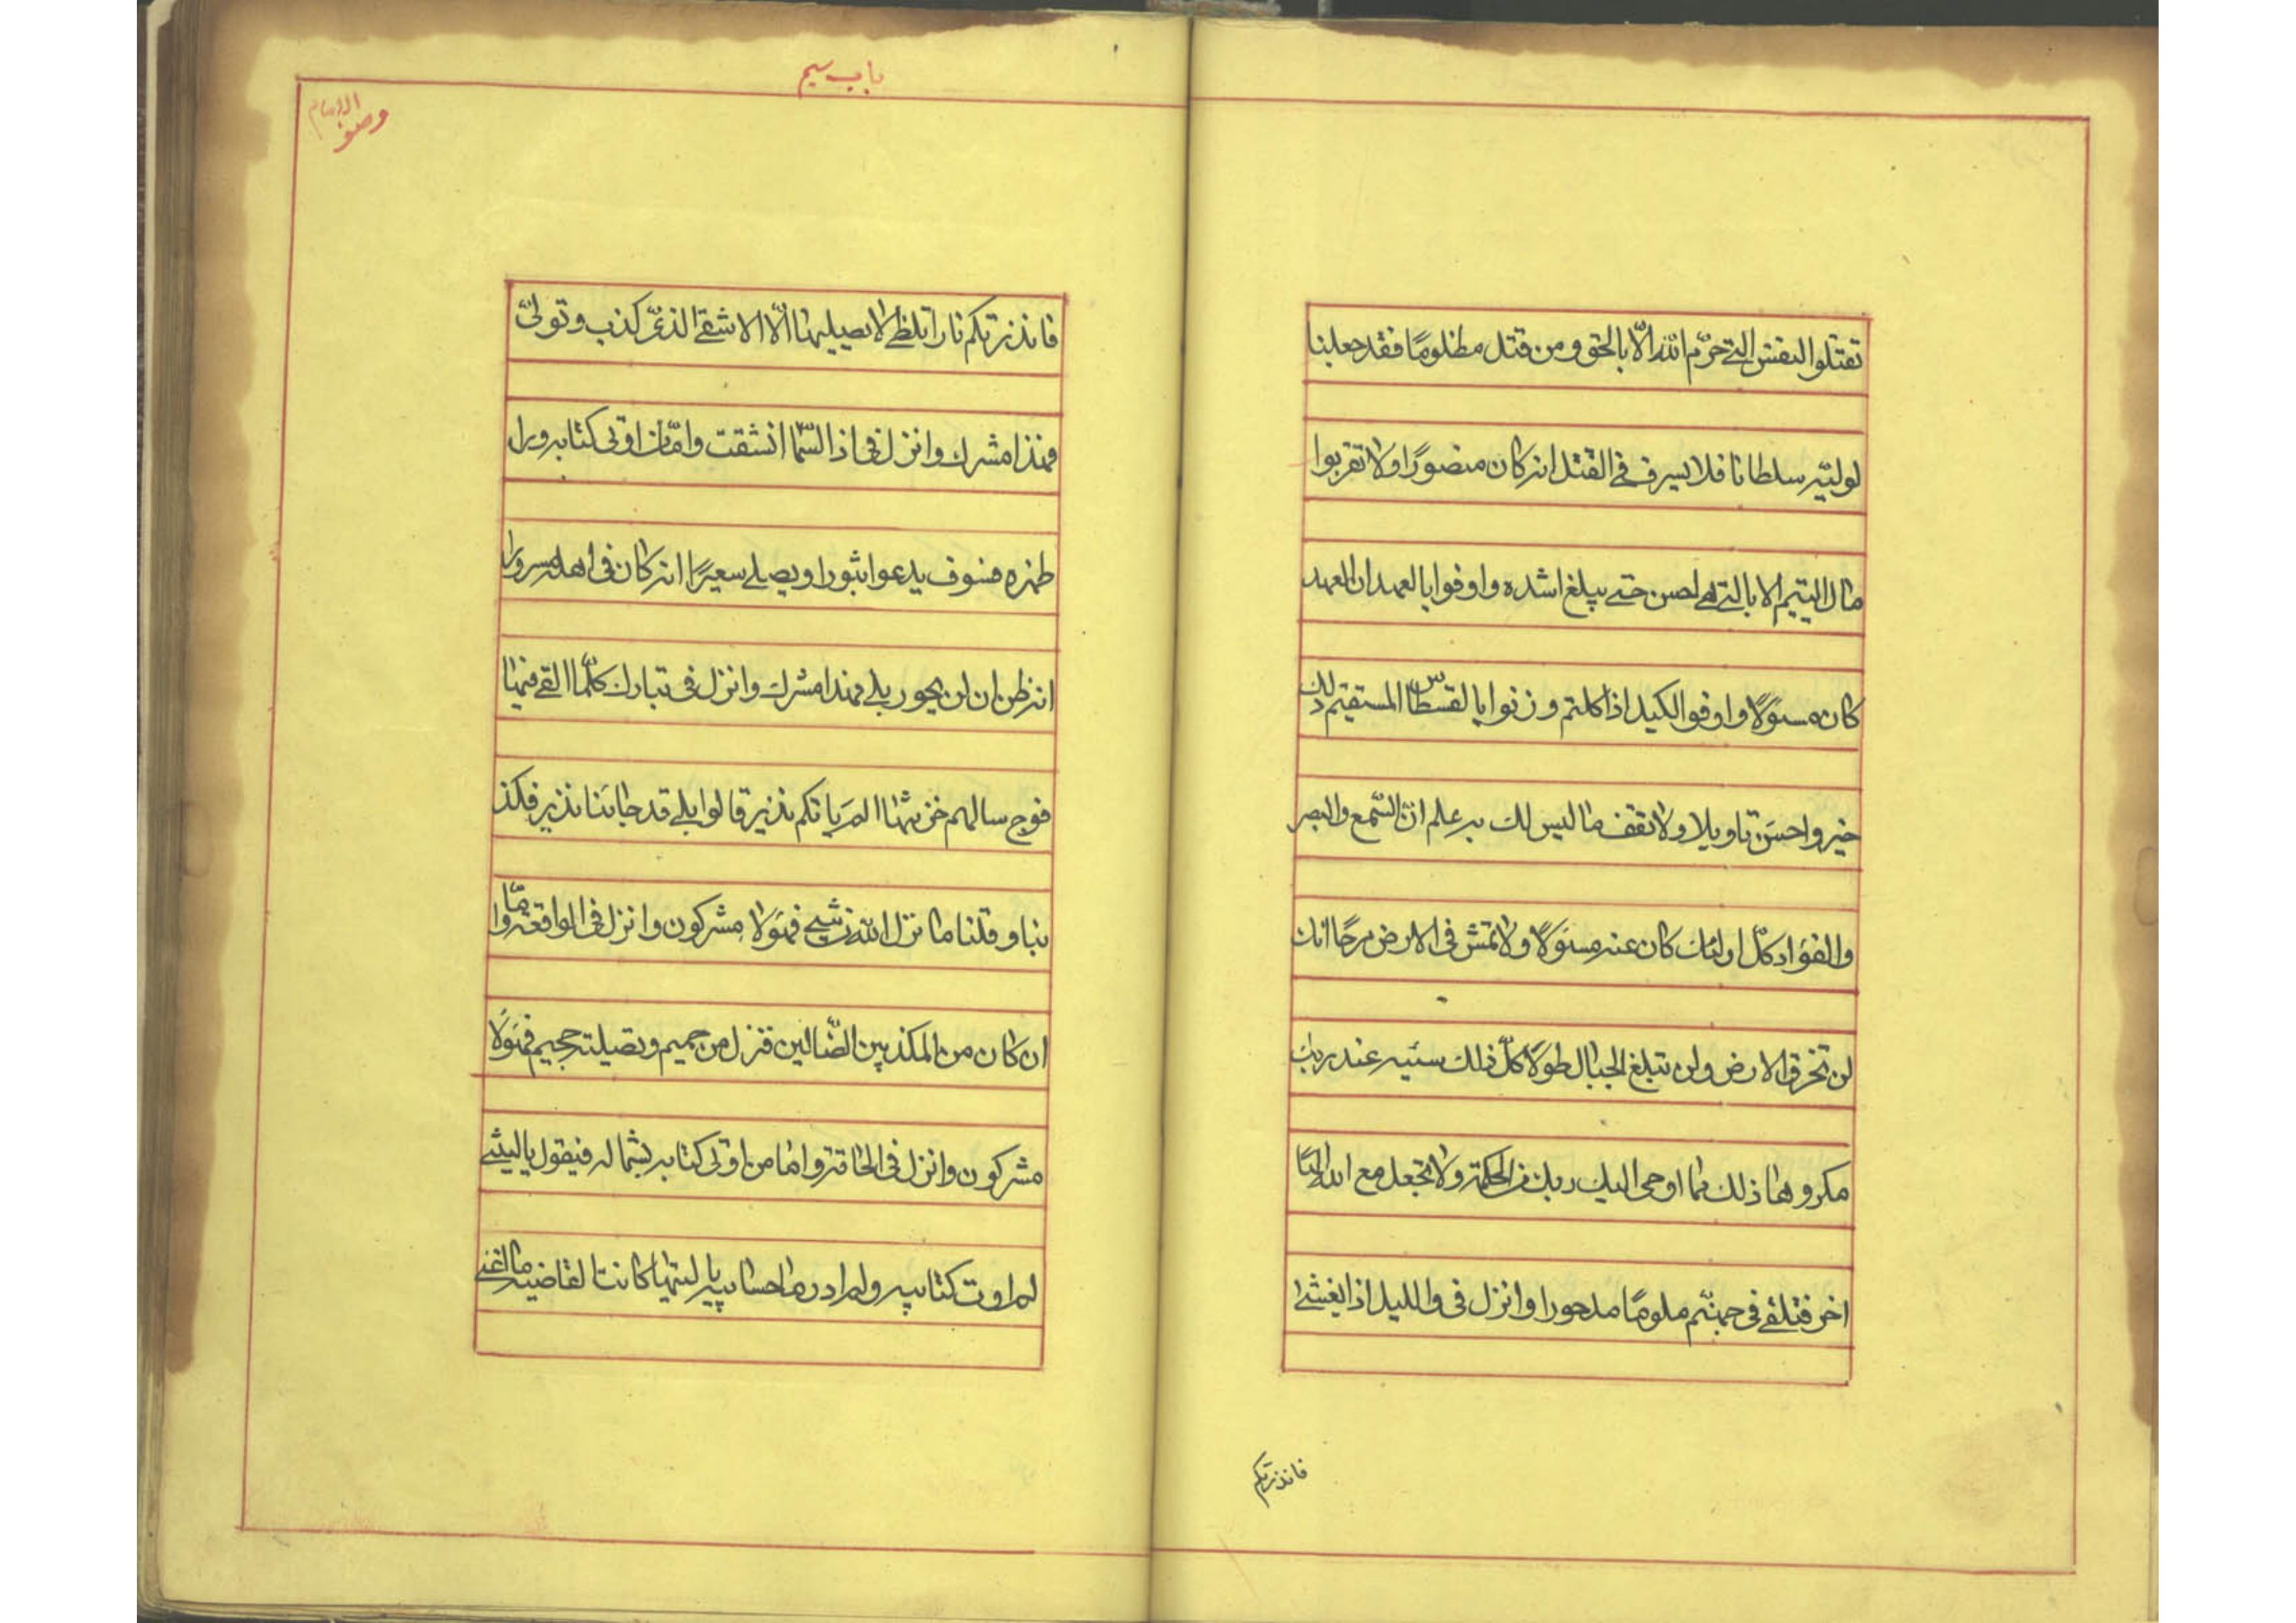 تقتلوا النفس التی حرّم الله الّا بالحق و من قتل مظلومًا فقد جعلنا
لولیّه سلطانا فلا یسرف فی القتل انه کان منصورًا و لا تقربوا
مال الیتیم الا بالتی هی احسن حتی یبلغ اشده و اوفوا بالعهد ان العهد
کان مسئولًا و اوفوا الکیل اذا کلتم و زنوا بالقسطاس المستقیم ذلک
خیر و احسن تاویلا و لا تقف ما لیس لک به علم انّ السّمع و البصر
و الفؤاد کلّ اولئک کان عنه مسئولًا و لا تمش فی الارض مرحًا انک
لن تخرق الارض و لن تبلغ الجبال طولًا کلّ ذلک سیئه عند ربک
مکروها ذلک مما اوحی الیک ربک من الحکمة و لا تجعل مع الله الهًا
اخر فتلقی فی جهنّم ملومًا مدحورا و انزل فی و اللیل اذا یغشی
فانذرتکم
باب سیم
وصف الامام
فانذرتکم نارا تلظی لا یصلیها الّا الاشقی الذیّ کذب و تولیّ
فهذا مشرک و انزل فی اذا السّماء انشقت و امّا من اوتی کتابه وراء
ظهره فسوف یدعوا ثبورا و یصلی سعیرًا انه کان فی اهله مسرورا
انه ظن ان لن یحور بلی فهذا مشرک و انزل فی تبارک کلّما القی فیها
فوج سالهم خزنتها الم یاتکم نذیر قالوا بلی قد جائنا نذیر فکذ
بنا و قلنا ما نزل الله من شیء فهؤلاء مشرکون و انزل فی الواقعة و امّا
ان کان من المکذبین الضّالین فنزل من حمیم و تصلیة جحیم فهؤلاء
مشرکون و انزل فی الحاقة و اما من اوتی کتابه بشماله فیقول یا لیتنی
لم اوت کتابیه و لم ادر ما حسابیه یا لیتها کانت القاضیه ما اغنی